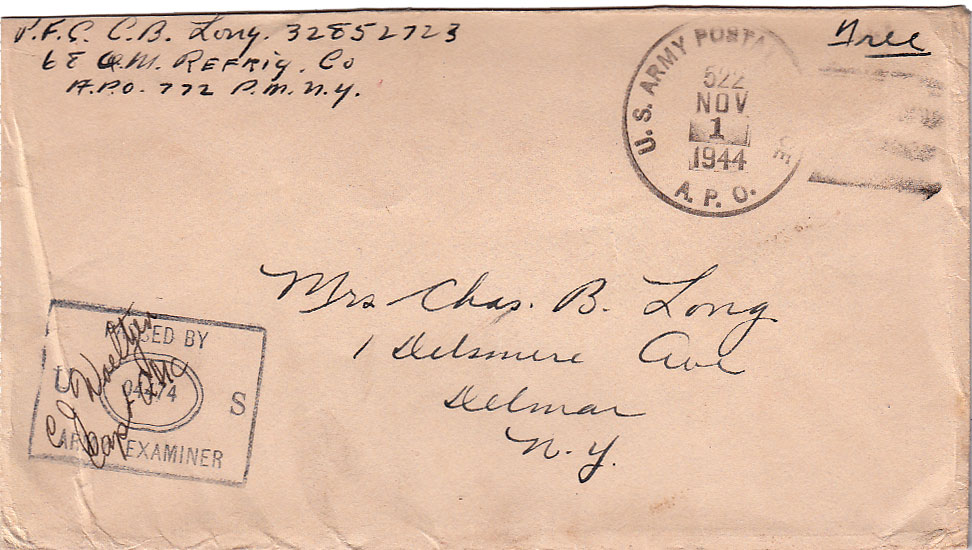 P.F.C. C.B. Long. 32852723
68 Q.M. REFRIG. Co
A.P.O. 772 P.M. N.Y.
Free
U.S. ARMY POSTAL
522
NOV
1
1944
A.P.O.
Mrs Chas. B. Long
1 Delsmere Ave
Delmar
N.Y.
PASSED BY
U S
ARMY EXAMINER
Capt QMC